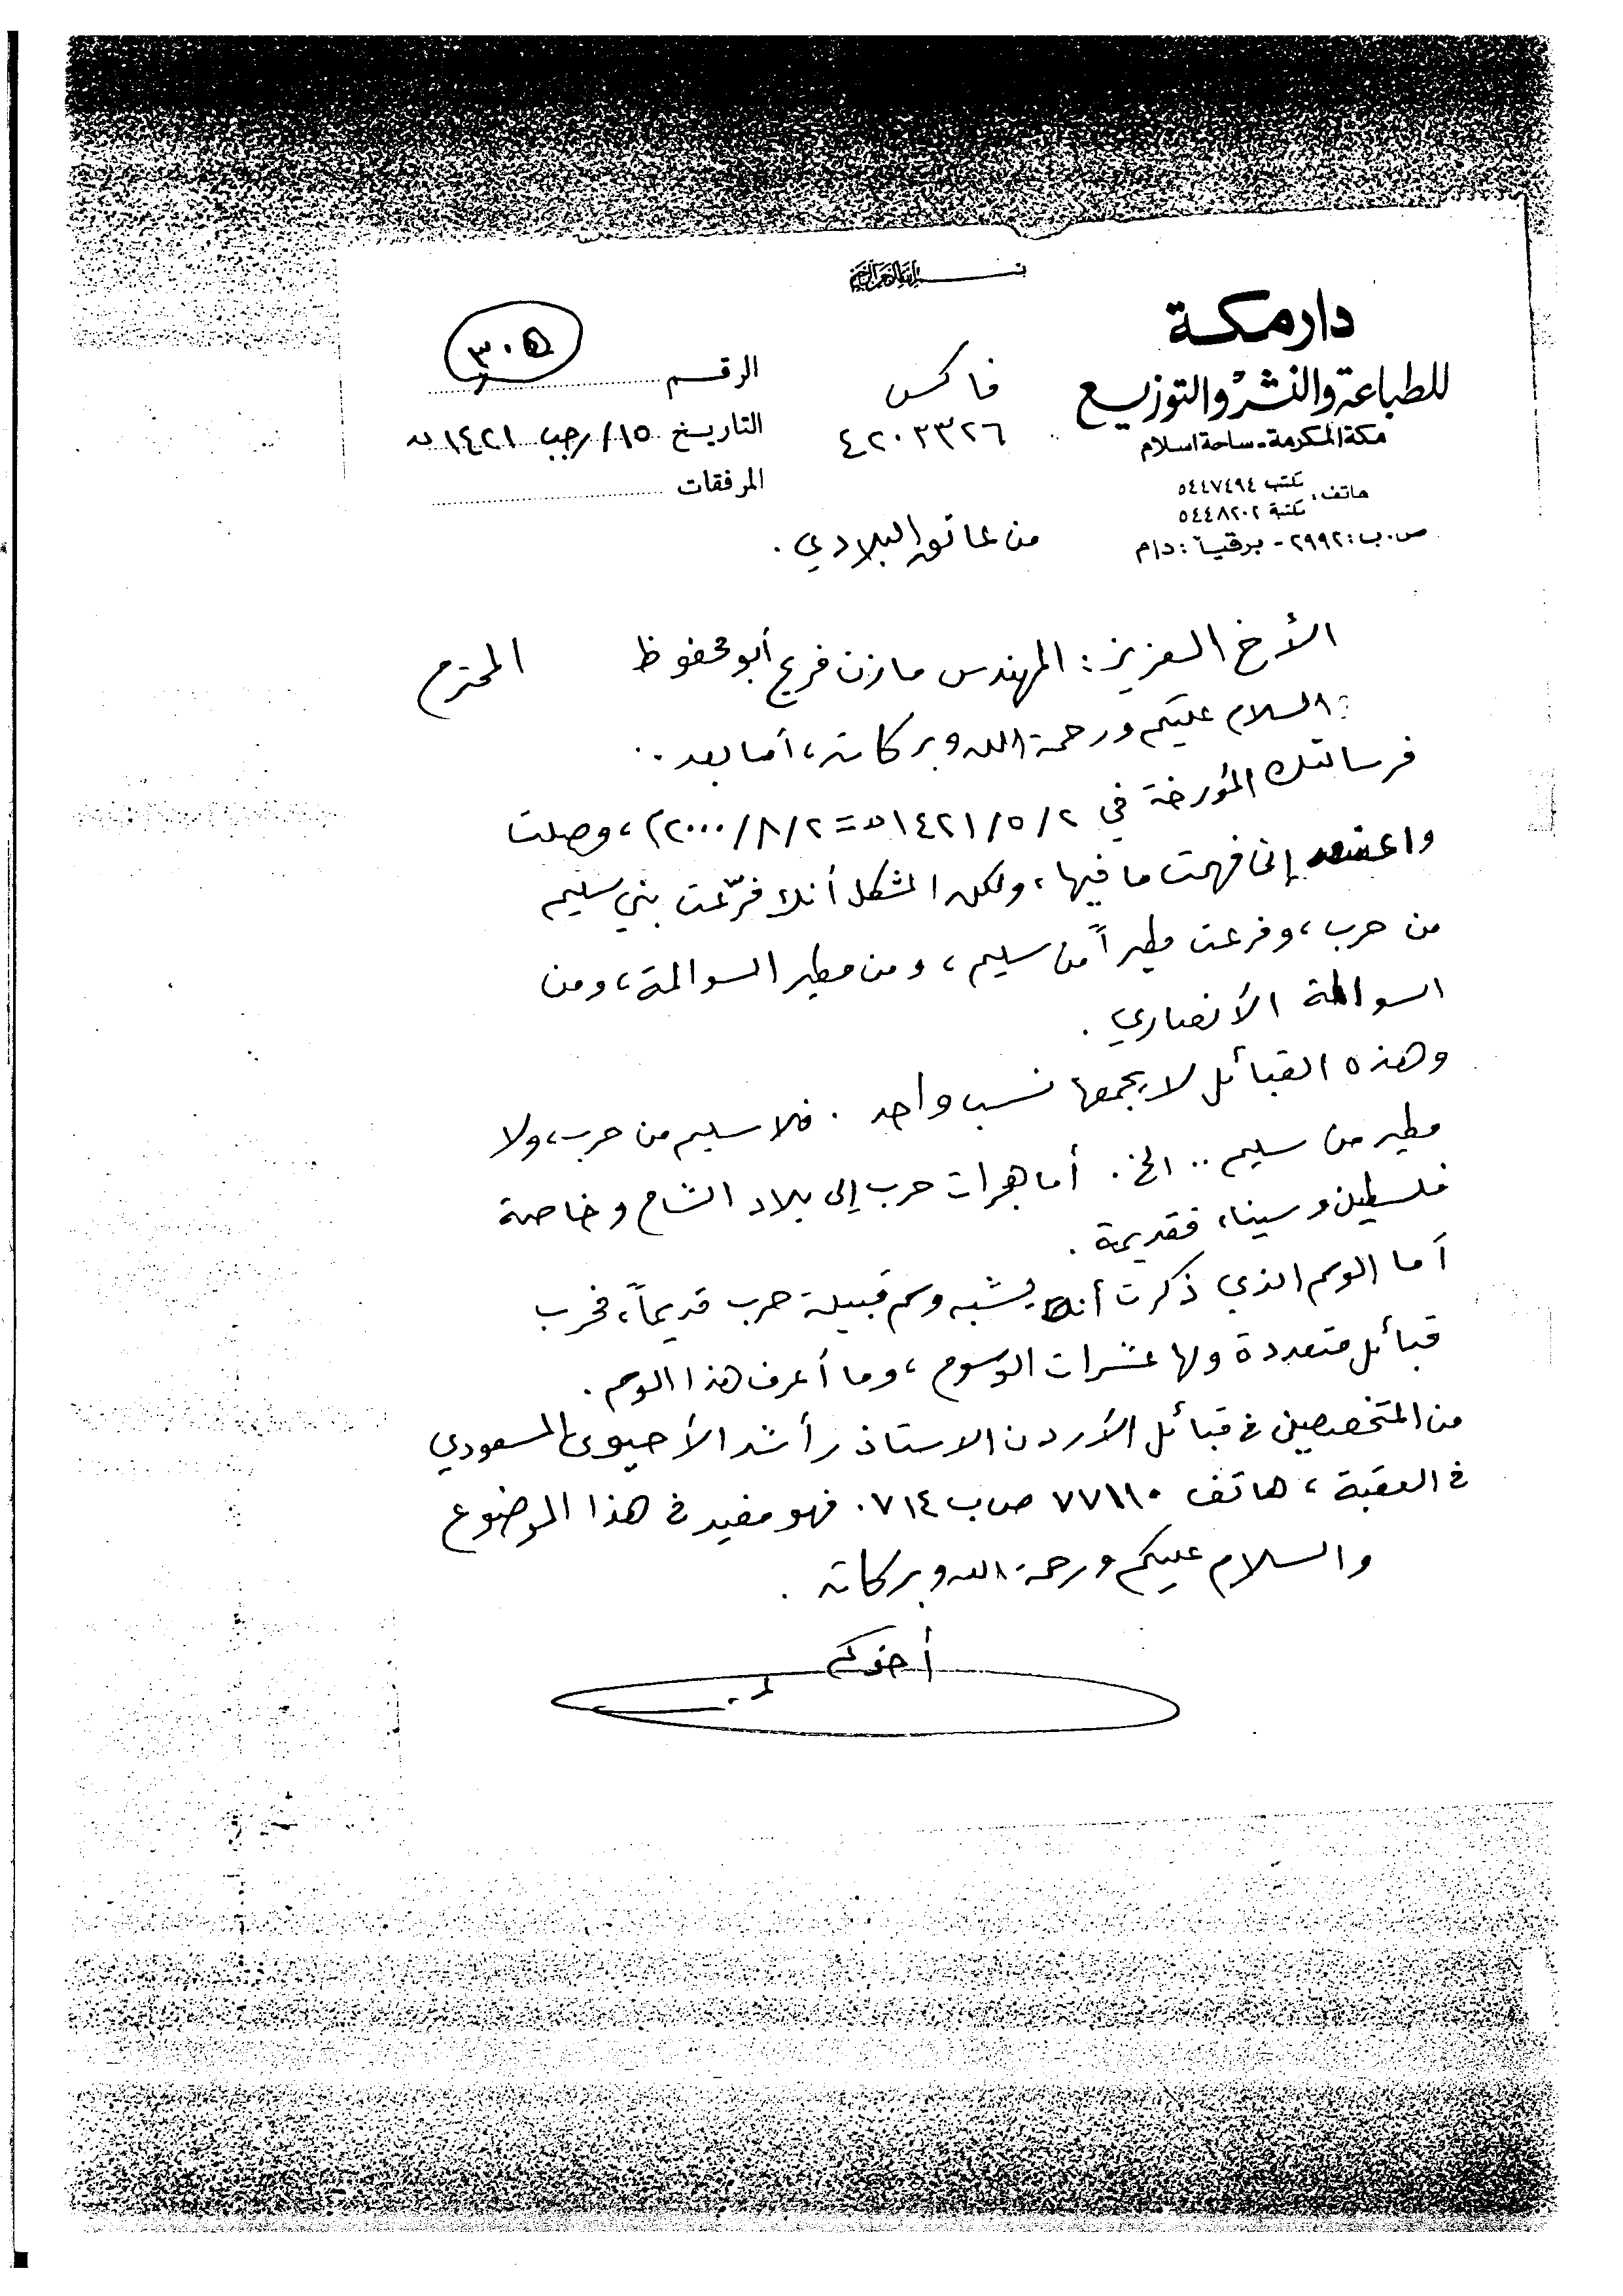 بسم الله الرحمن الرحيم
دار مكة
للطباعة والنشر والتوزيع
مكة المكرمة - ساحة اسلام
هاتف: مكتب ٥٤٤٧٤٩٤
مكتبة ٥٤٤٨٢٠٢
ص.ب: ٢٩٩٢ - برقياً: دام
فاكس
٤٢٠٣٣٢٦
الرقم ٣٠٥
التاريخ ١٥/رجب ١٤٢١ هـ
المرفقات
من عاتق البلادي .
الأخ العزيز : المهندس مازن فريج أبو محفوظ المحترم
السلام عليكم ورحمة الله وبركاته، أما بعد ..
فرسالتك المؤرخة في ٢/٥/١٤٢١هـ = ٢/٨/٢٠٠٠م، وصلت
واعتقد إني فهمت ما فيها، ولكن المشكل أنك فرّعت بني سليم
من حرب، وفرعت مطيراً من سليم، ومن مطير السوالمة، ومن
السوالمة الأنصاري .
وهذه القبائل لا يجمعها نسب واحد . فلا سليم من حرب، ولا
مطير من سليم .. الخ . أما هجرات حرب إلى بلاد الشام وخاصة
فلسطين وسيناء فقديمة .
أما الوسم الذي ذكرت أنه يشبه وسم قبيلة حرب قديماً، فحرب
قبائل متعددة ولها عشرات الوسوم، وما أعرف هذا الوسم .
من المتخصصين في قبائل الأردن الاستاذ راشد الأحيوي المسعودي
في العقبة، هاتف ٧٧١١٠ ص ب ٧١٤ . فهو مفيد في هذا الموضوع
والسلام عليكم ورحمة الله وبركاته .
أخوكم